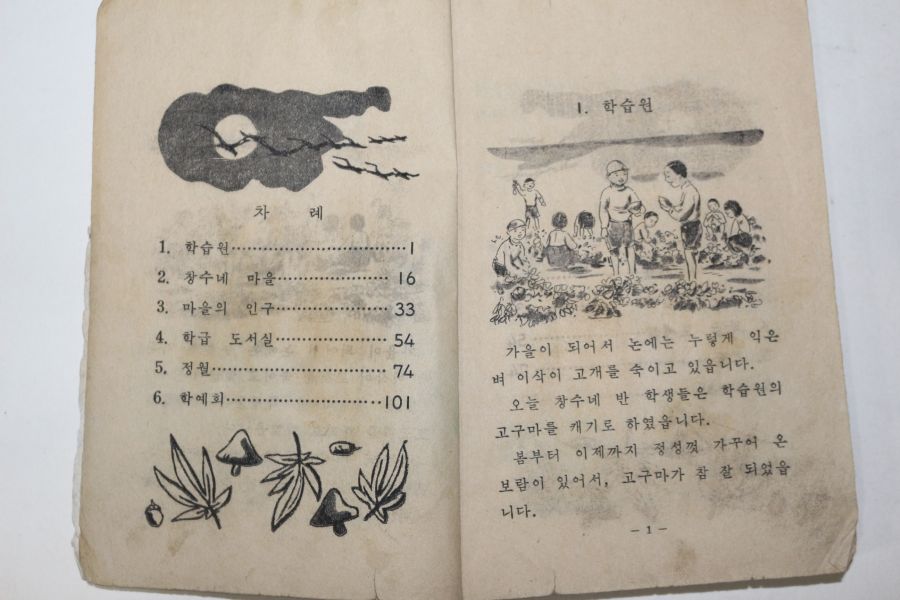 차 례
1. 학습원 1
2. 창수네 마을 16
3. 마을의 인구 33
4. 학급 도서실 54
5. 정월 74
6. 학예회 101
1. 학습원
가을이 되어서 논에는 누렇게 익은
벼 이삭이 고개를 숙이고 있읍니다.
오늘 창수네 반 학생들은 학습원의
고구마를 캐기로 하였읍니다.
봄부터 이제까지 정성껏 가꾸어 온
보람이 있어서, 고구마가 참 잘 되었읍
니다.
— 1 —